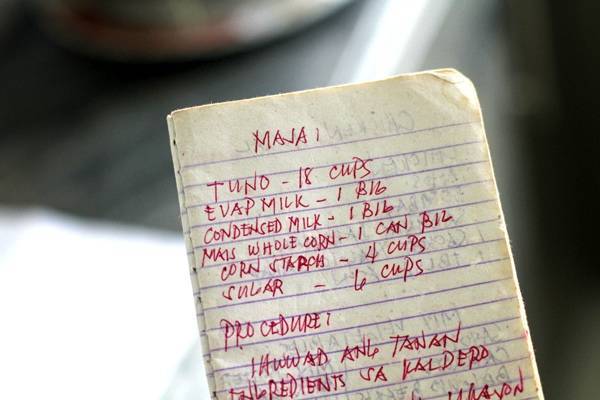 MAJA:
TUNO - 18 CUPS
EVAP MILK - 1 BIG
CONDENSED MILK - 1 BIG
MAIS WHOLE CORN - 1 CAN BIG
CORN STARCH - 4 CUPS
SUGAR - 6 CUPS
PROCEDURE:
HUWAD ANG TANAN
INGREDIENTS SA KALDERO